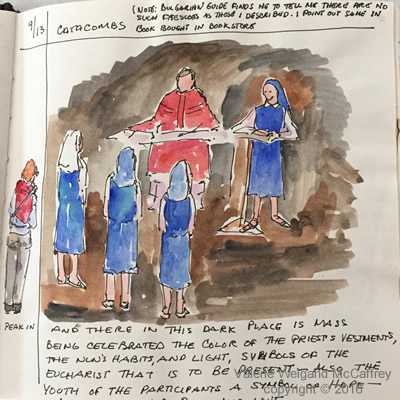 (NOTE: BULGARIAN GUIDE FINDS ME TO TELL ME THERE ARE NO
SUCH FRESCOES AS THOSE I DESCRIBED. I POINT OUT SAME IN
BOOK BOUGHT IN BOOKSTORE
9/13
CATACOMBS
PEAK IN
AND THERE IN THIS DARK PLACE IS MASS
BEING CELEBRATED THE COLOR OF THE PRIEST'S VESTMENTS,
THE NUN'S HABITS, AND LIGHT, SYMBOLS OF THE
EUCHARIST THAT IS TO BE PRESENT — ALSO THE
YOUTH OF THE PARTICIPANTS A SYMBOL OF HOPE —
Valerie Weigand McCaffrey
Copyright © 2016